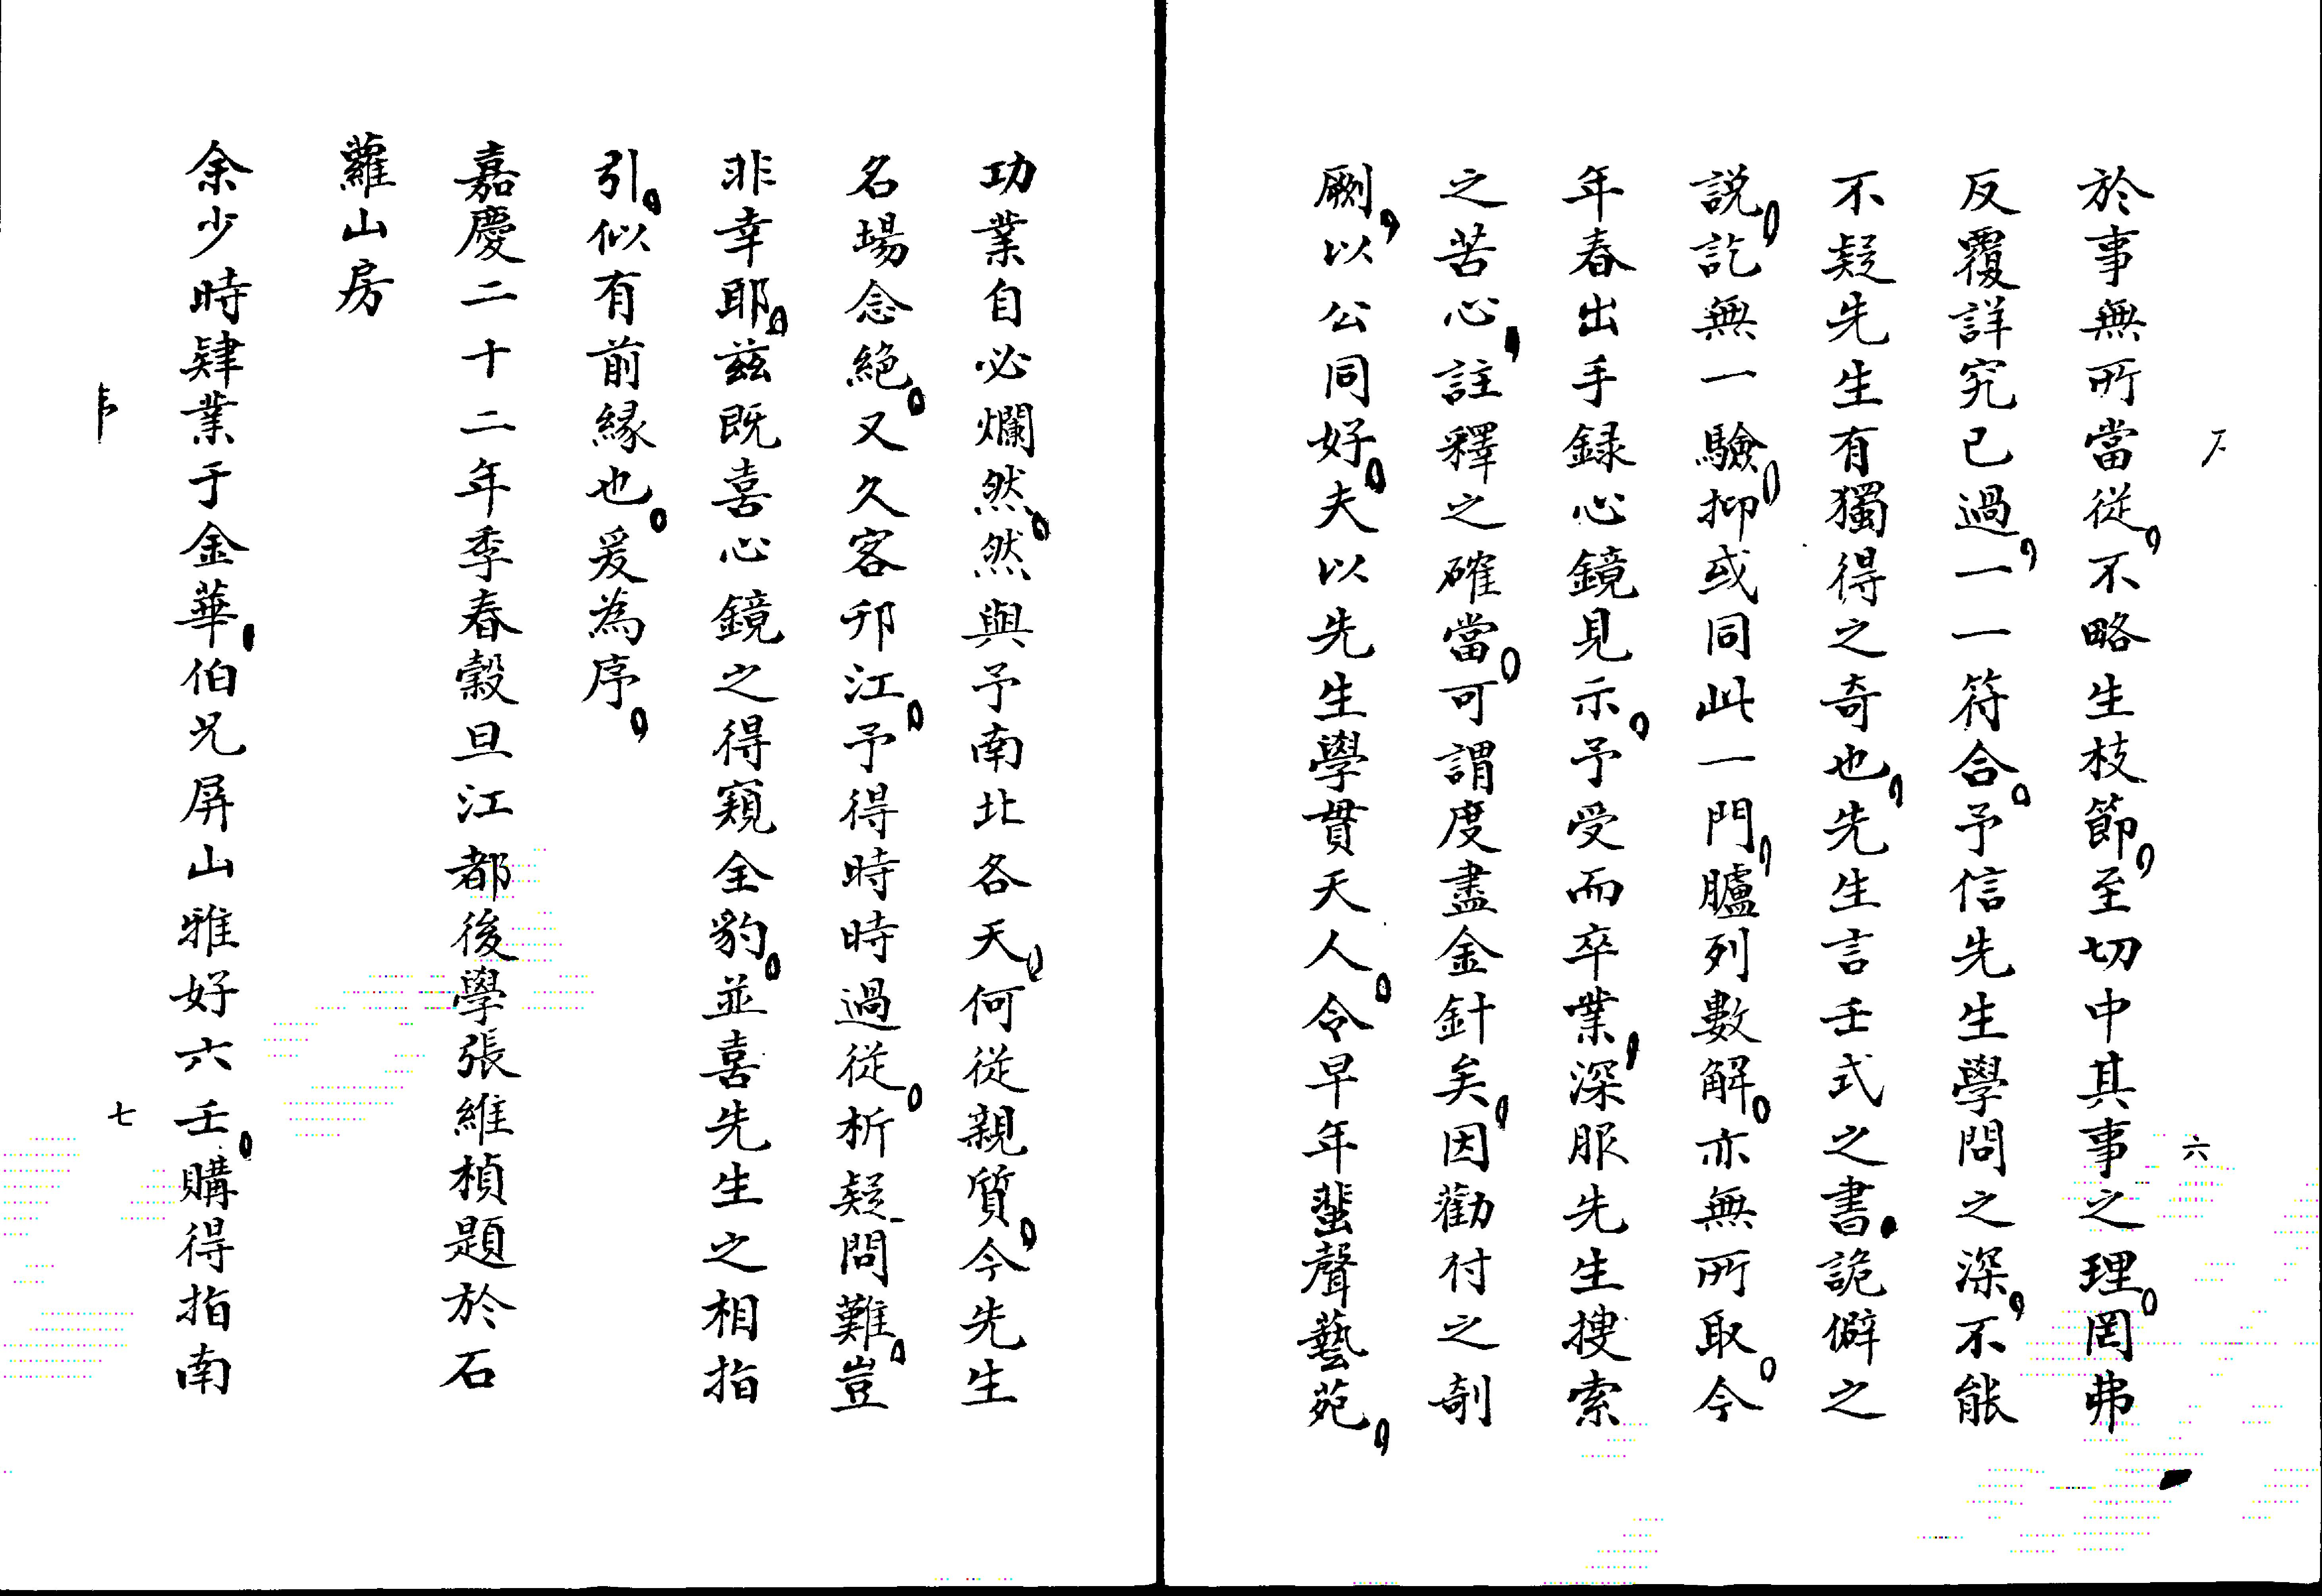 於事無所當從不略生枝節至切中其事之理罔弗
反覆詳究已過一一符合予信先生學問之深不能
不疑先生有獨得之奇也先生言壬式之書詭僻之
説訖無一驗抑或同此一門臚列數解亦無所取今
年春出手録心鏡見示予受而卒業深服先生搜索
之苦心註釋之確當可謂度盡金針矣因勸付之剞
劂以公同好夫以先生學貫天人令早年蜚聲藝苑
六
功業自必爛然然與予南北各天何從親質今先生
名場念絕又久客邗江予得時時過從析疑問難豈
非幸耶茲既喜心鏡之得窺全豹並喜先生之相指
引似有前緣也爰為序
嘉慶二十二年季春穀旦江都後學張維楨題於石
蘿山房
余少時肄業于金華伯兄屏山雅好六壬購得指南
七